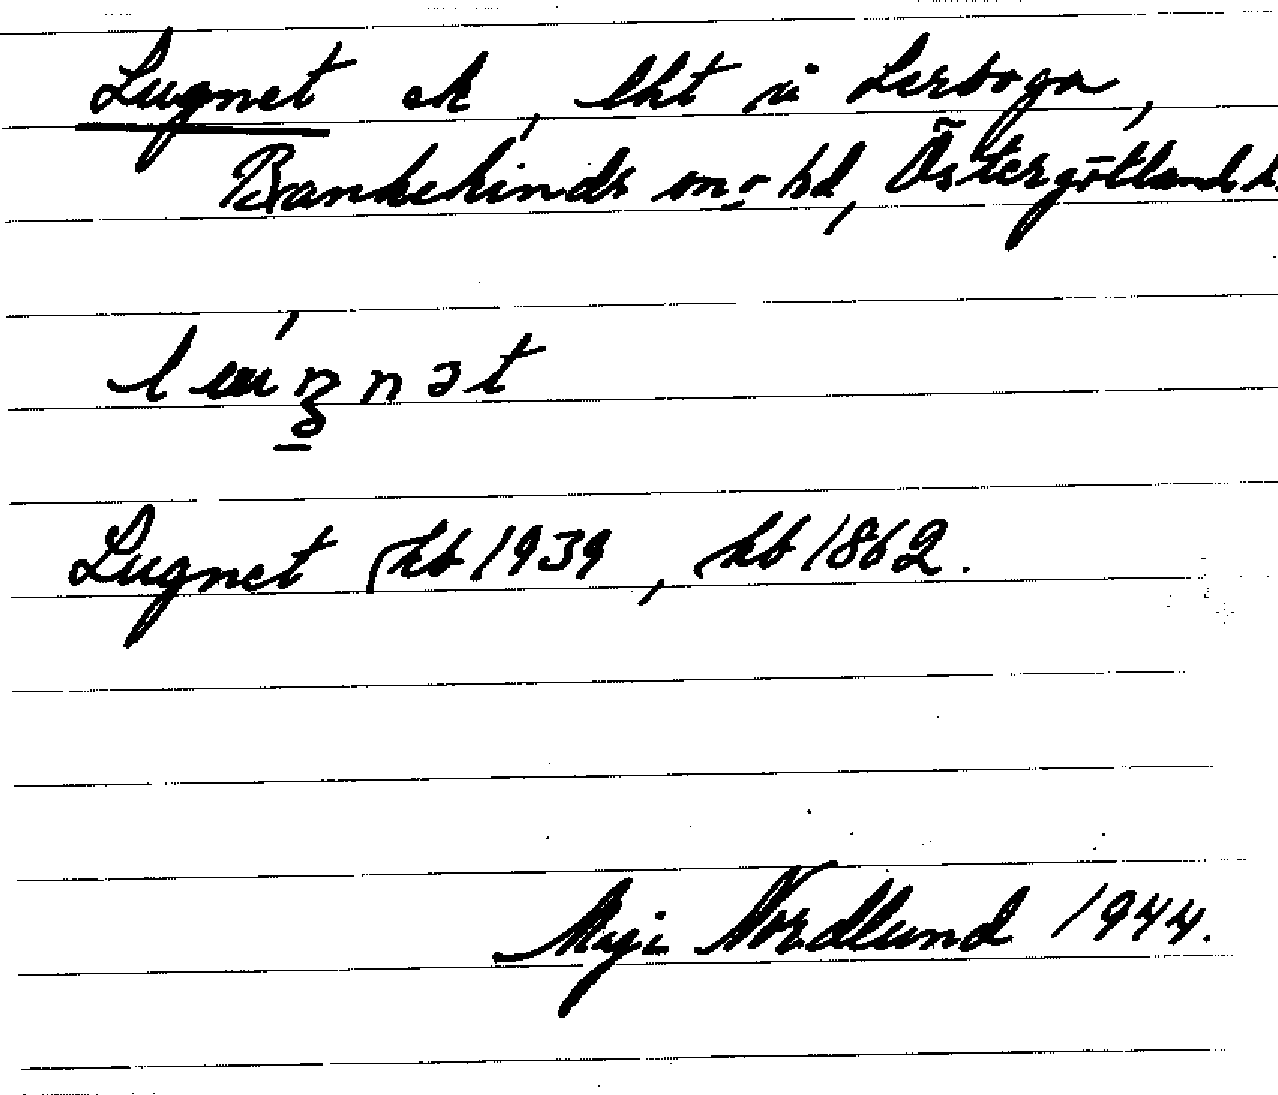 Lugnet ek, lht u Lerboga,
Bankekinds sn o hd, Östergötlands
Lugnet kb 1939, hb 1862.
Maji Nordlund 1944.